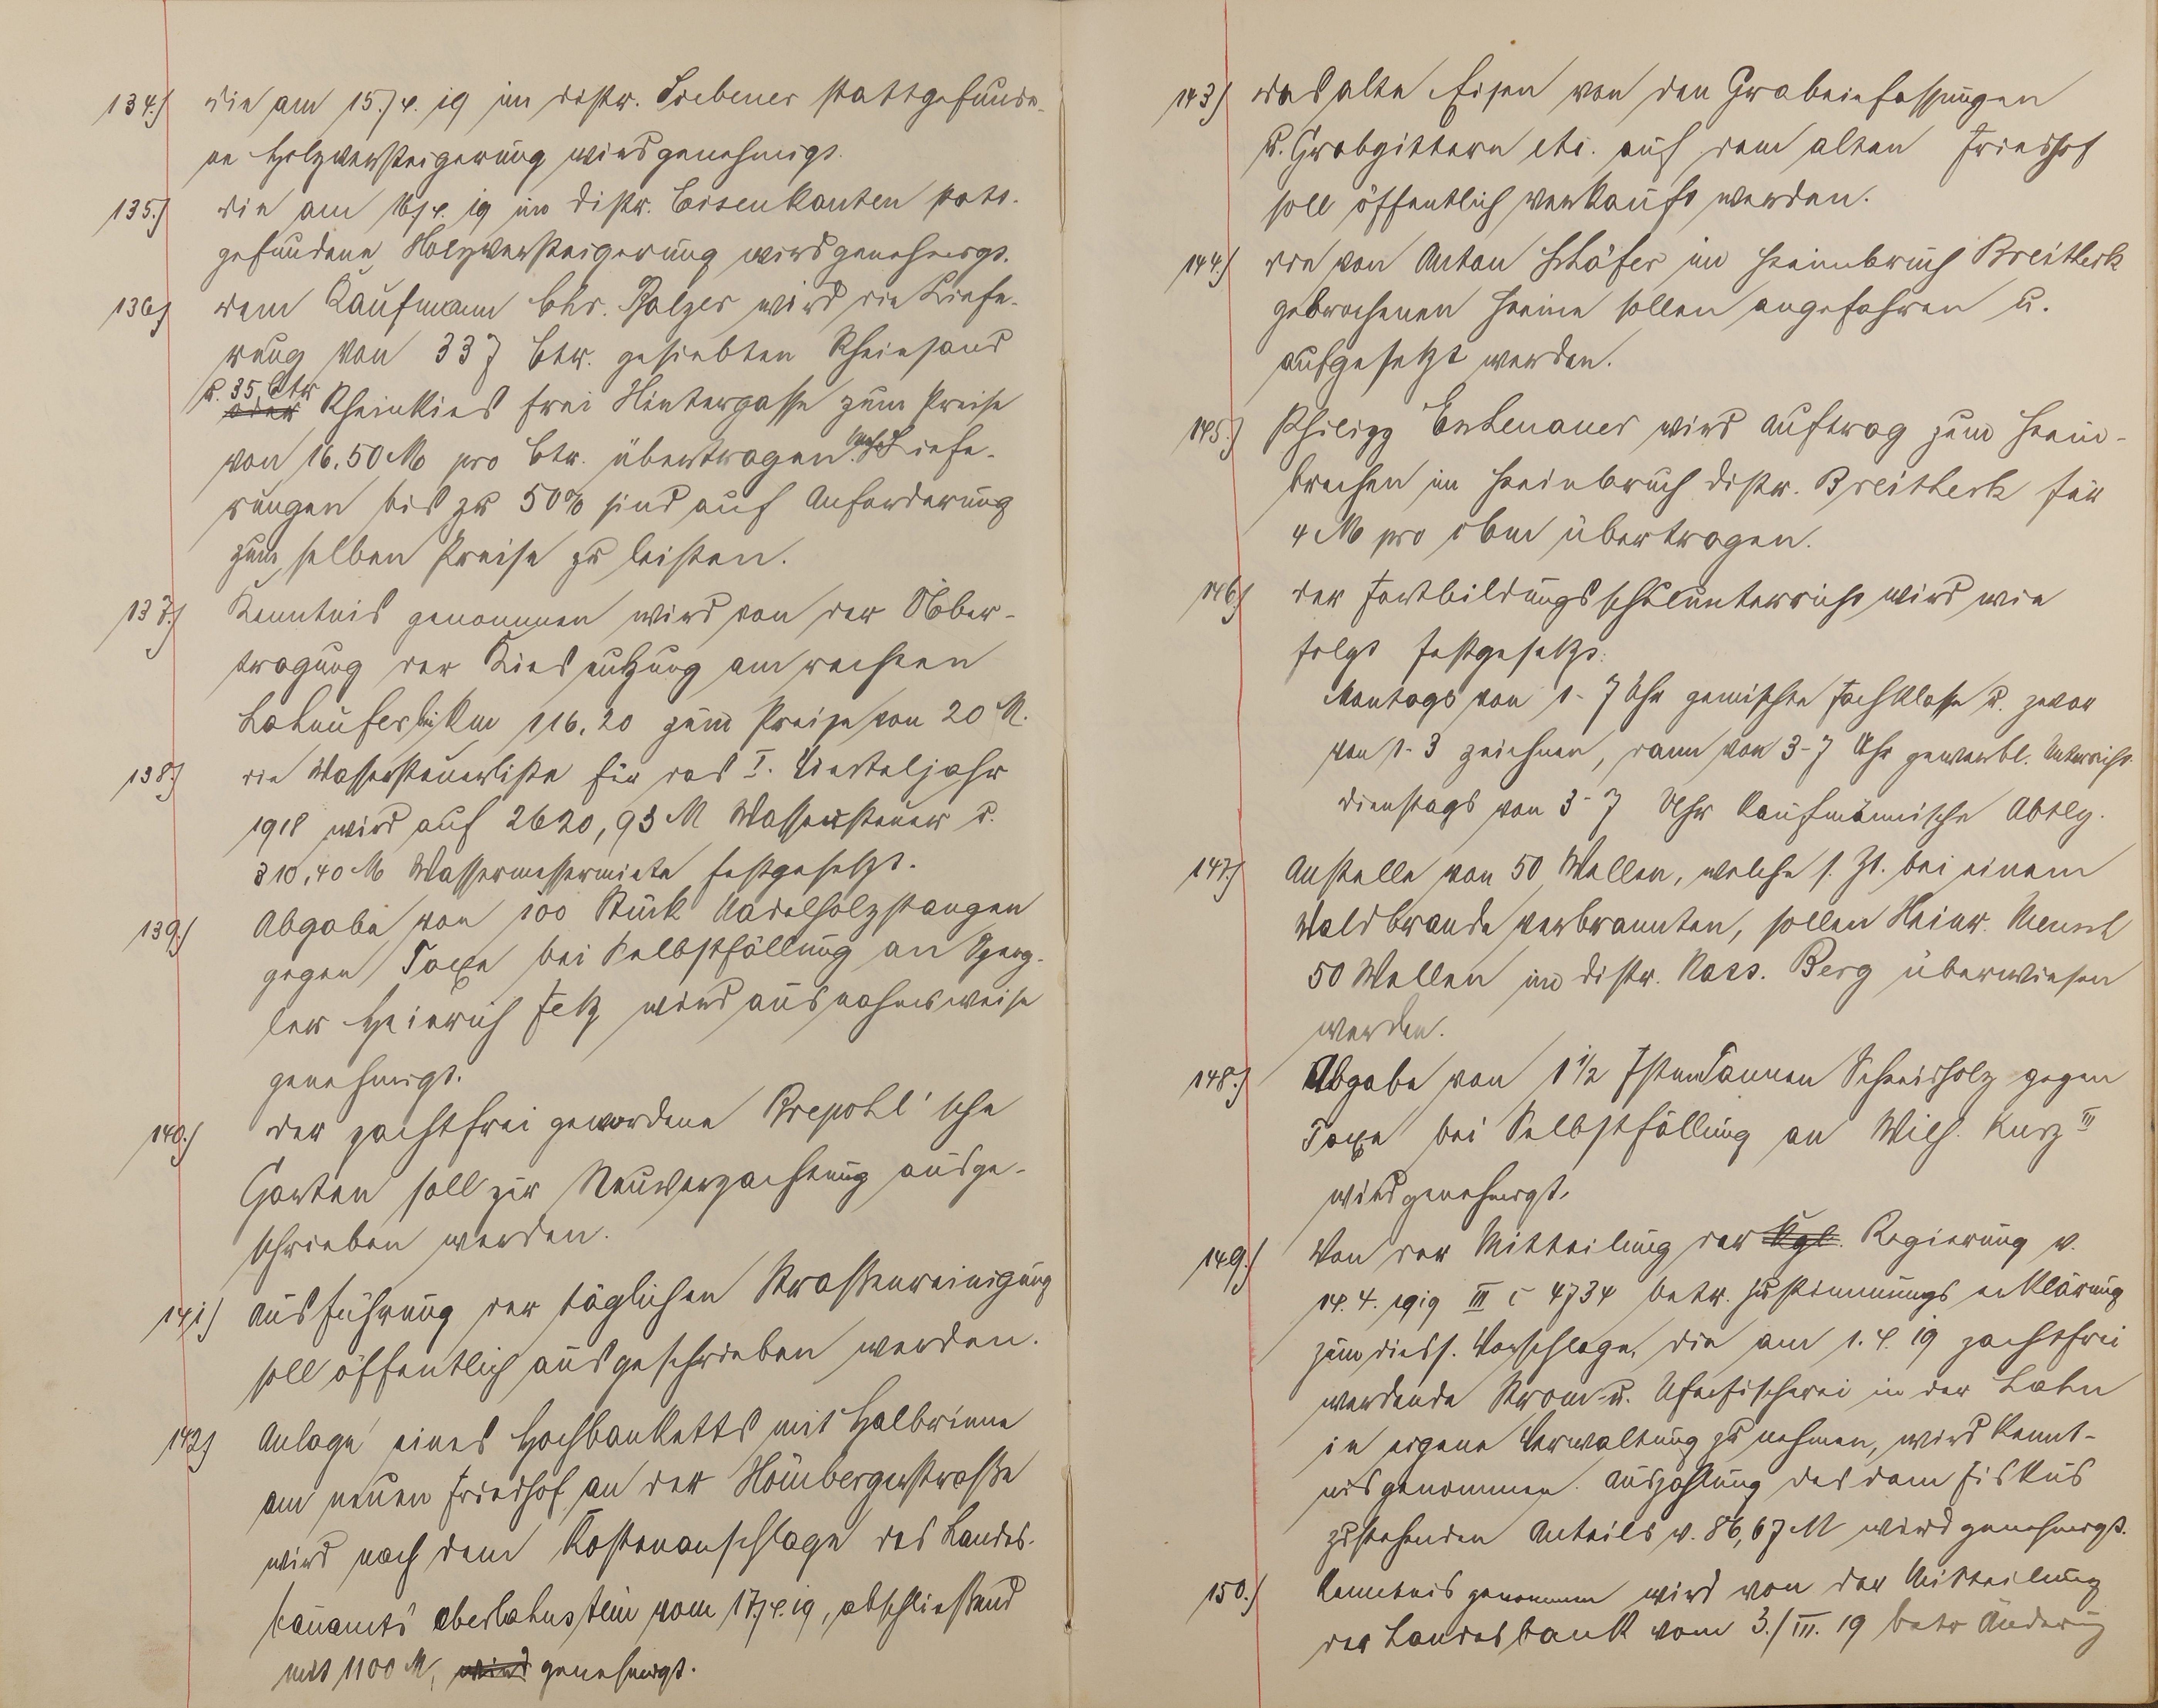 134.) die am 15./4. 19 im distr. Liebener stattgefunde-
ne Holzversteigerung wird genehmigt.
135.) die am 16./4. 19 im distr. Eisenkanten statt-
gefundene Holzversteigerung wird genehmigt.
136) dem Kaufmann Chr. Balzer wird die Liefe-
rung von 337 Ctr. gesiebten Rheinsand
u. 35 Ctr
oder Rheinkies frei Hintergasse zum Preise
von 16.50 M pro Ctr. übertragen. Nach Liefe-
rungen bis zu 50% sind auf Anforderung
zum selben Preise zu leisten.
137.) Kenntnis genommen wird von der Über-
tragung der Kiesnutzung am rechten
Lahnufer bei Km 116,20 zum Preise von 20 M.
138.) die Wassersteuerliste für das I. Vierteljahr
1918 wird auf 2620,93 M Wassersteuer u.
310,40 M Wassermessermiete festgesetzt.
139.) Abgabe von 100 Stück Nadelholzstangen
gegen Taxe bei Selbstfällung an Speng-
ler Heinrich Fetz wird ausnahmsweise
genehmigt.
140.) der pachtfrei gewordene Brepohl'sche
Garten soll zur Neuverpachtung ausge-
schrieben werden.
141) Ausführung der täglichen Straßenreinigung
soll öffentlich ausgeschrieben werden.
142) Anlage eines Hochbanketts mit Halbrinne
am neuen Friedhof an der Hömbergerstraße
wird nach dem Kostenanschlage des Landes-
bauamts Oberlahnstein vom 17./4. 19, abschließend
mit 1100 M, wird genehmigt.
143) das alte Eisen von den Grabeinfassungen
u. Grabgittern etc. auf dem alten Friedhof
soll öffentlich verkauft werden.
144.) die von Anton Schäfer im Steinbruch Breitheck
gebrochenen Steine sollen angefahren u.
aufgesetzt werden.
145.) Philipp wird Auftrag zum Stein-
brechen im Steinbruch distr. Breitheck für
4 M pro cbm übertragen.
146.) der Fortbildungsschulunterricht wird wie
folgt festgesetzt:
Montags von 1-7 Uhr gemischte Fachklasse u. zwar
von 1-3 zeichnen, dann von 3-7 Uhr gewerbl. Unterricht
dienstags von 3-7 Uhr kaufmännische Abtlg.
147.) Anstelle von 50 Wellen, welche s. Zt. bei einem
Waldbrande verbrannten, sollen Heinr. Mensel
50 Wellen im distr. Nass. Berg überwiesen
werden.
148.) Abgabe von 1 1/2 Fstm Tannen Schneidholz gegen
Taxe bei Selbstfällung an Wilh. Kurz III
wird genehmigt.
149.) Von der Mitteilung der Kgl. Regierung v.
14. 4. 1919 III c 4734 betr. Zustimmungserklärung
zum diess. Vorschlage, die am 1. 4. 19 pachtfrei
werdende Strom- u. Uferfischerei in der Lahn
in eigene Verwaltung zu nehmen, wird Kennt-
nis genommen. Auszahlung des dem Fiskus
zustehenden Anteils v. 86,67 M wird genehmigt.
150.) Kenntnis genommen wird von der Mitteilung
der Landesbank vom 3./III. 19 betr Änderung